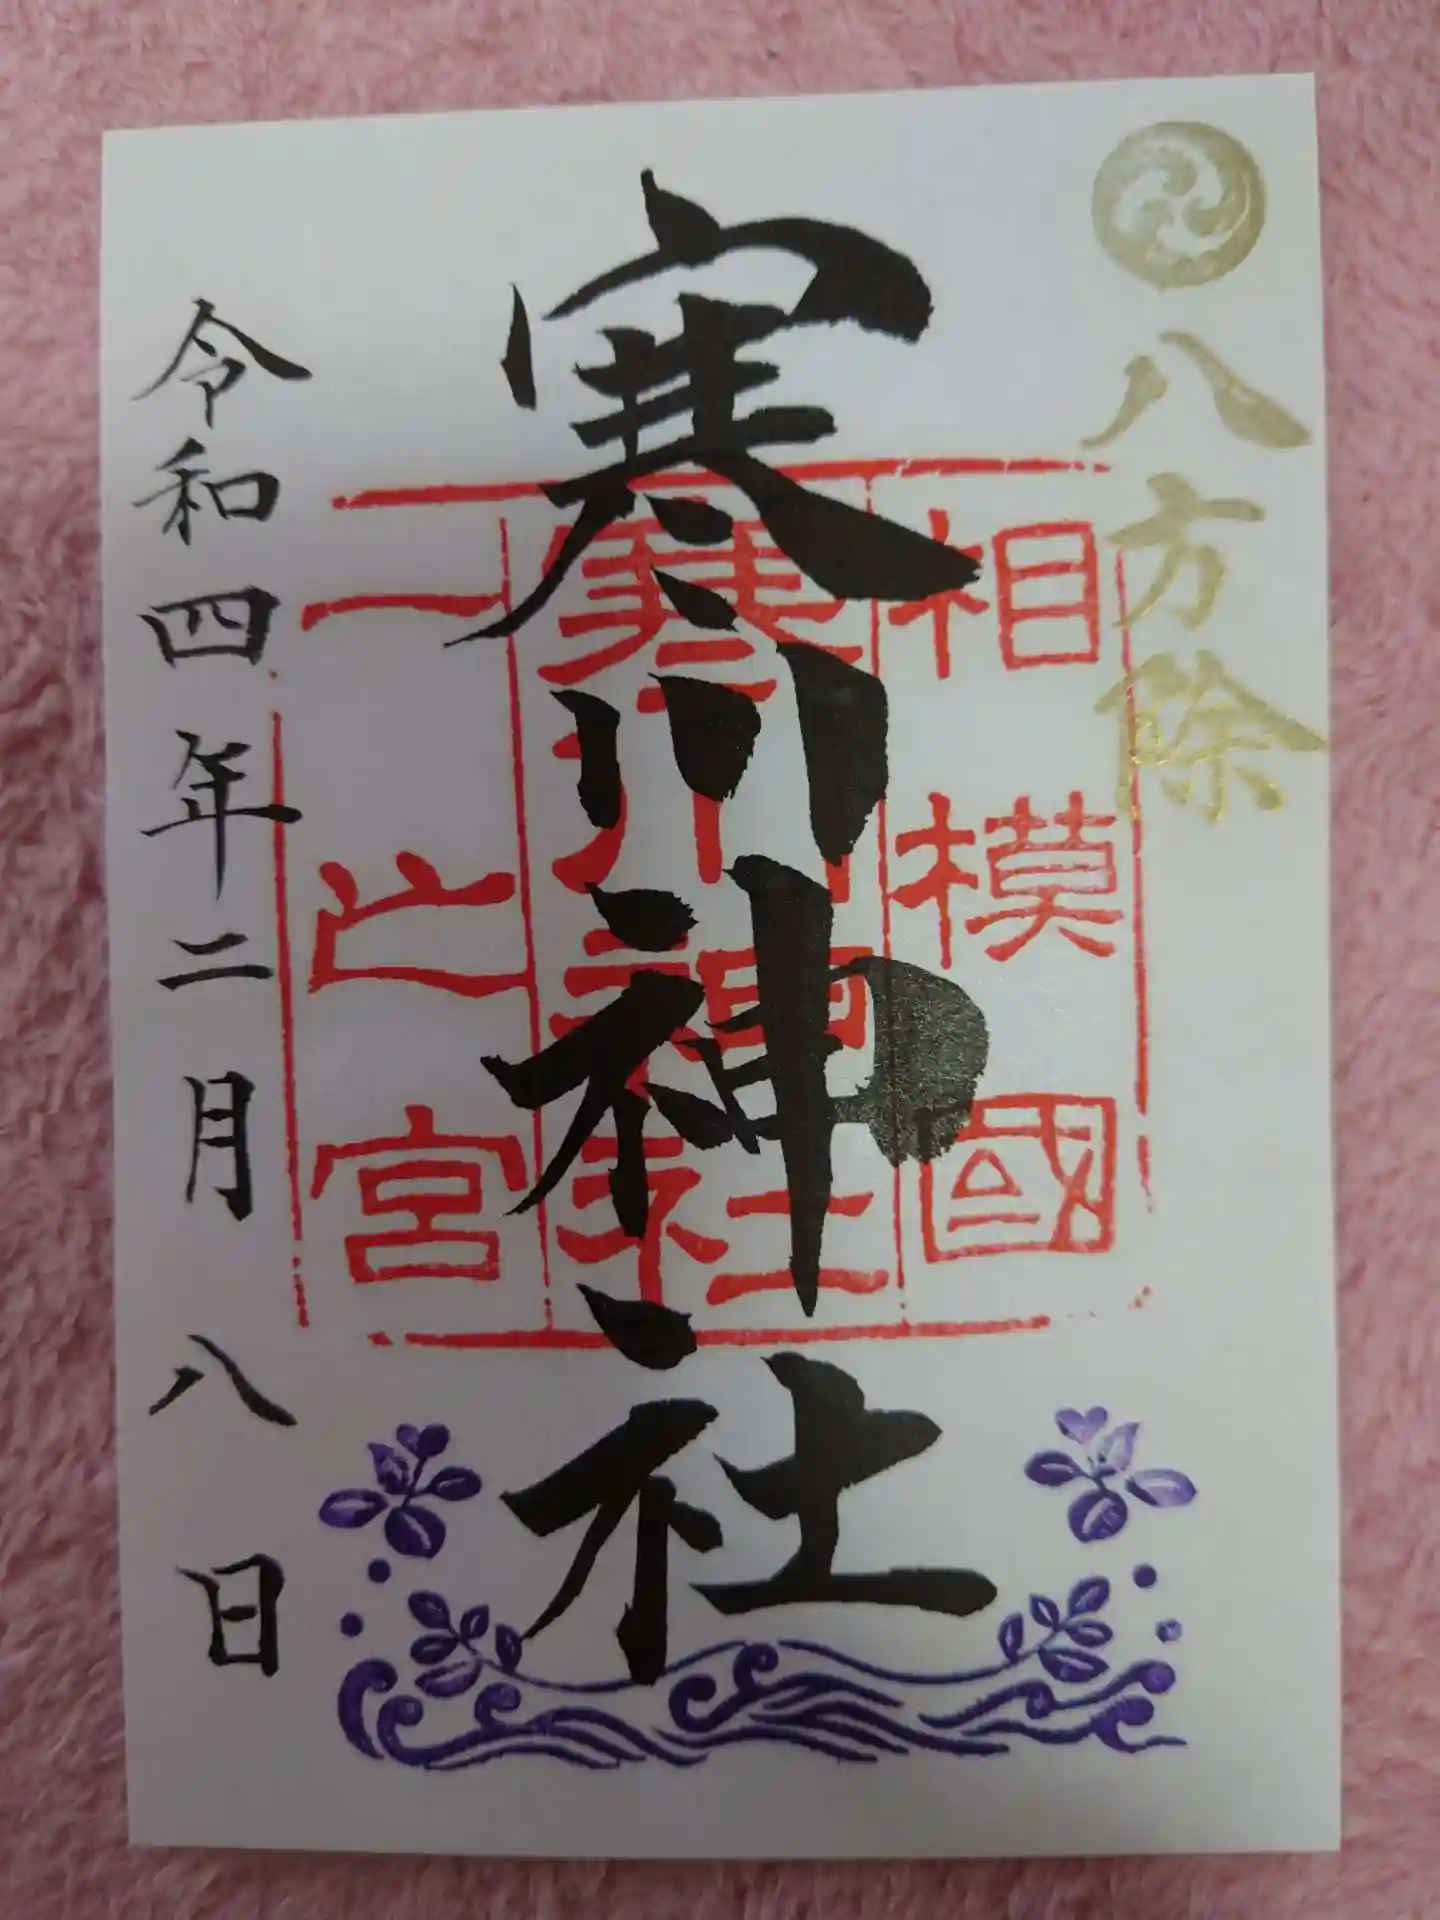 八方除
寒川神社
相模國
寒川神社
一之宮
令和四年二月八日